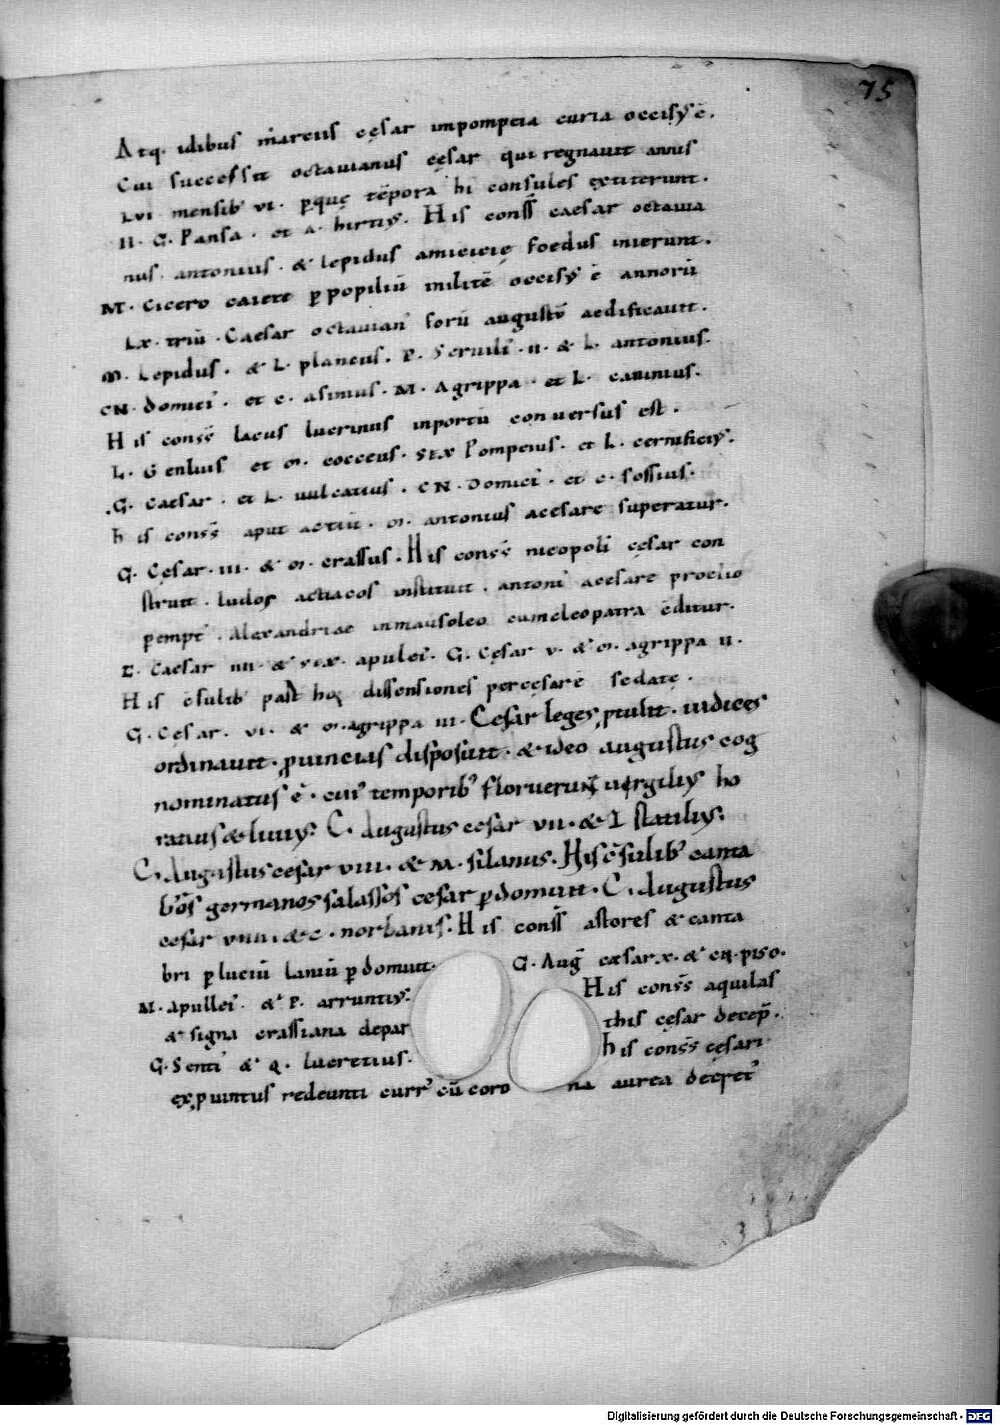 75
Atq· idibus marciis cęsar inpompeia curia occisꝰ ē.
Cui successit octauianus cęsar qui regnauit annis
LVI· mensibꝰ VI· ꝑquę tēpora hi consules extiterunt.
II· G· Pansa· et a· hirtiꝰ. His conss̄ caesar octauia
nus· antonius· & lepidus amicicię foedus inierunt.
M· Cicero caiete ꝑ popiliū militē occisꝰ ē annorū
Lx· triū· Caesar octauianꝰ forū augustū aedificauit.
M· Lepidus· & L· plancus. P· Seruili· II· & L· antonius.
CN· domici· et c· asinius· M· Agrippa· et L· caninius.
His conss̄ lacus lucrinus inportū conuersus est.
L· Genlius et M· cocceus· sex Pompeius· et L· cernificiꝰ.
G· Caesar· et L· uulcatius· CN· Domici· et c· sossius·
his conss̄ aput actiū· M· antonius acesare superatur.
G· Cęsar· III· & M· crassus· His conss̄ nicopoli cęsar con
struit· ludos actiacos instituit· antoni acesare proelio
pempt· Alexandriae inmausoleo cumcleopatra cditur.
C· Caesar IIII· & sex· apulei· G· Cęsar V· & M· agrippa II·
His c̄sulibꝰ past hoꝝ dissensiones percęsarē sedatę.
G· Cęsar· VI· & M· agrippa III· Cęsar leges ꝓtulit· iudices
ordinauit· ꝓuincias disposuit· & ideo augustus cog
nominatus ē· cuiꝰ temporibꝰ floruerunt uergiliꝰ ho
ratius & liuiꝰ. C· Augustus cesar VII· & T statiliꝰ.
C· Augustus cesar VIII· & M· silanus. His c̄sulibꝰ canta
bros germanos salassos cesar ꝑdomuit· C· Augustus
cesar VIIII· & c· norbaniꝰ. His conss̄ astores & canta
bri ꝑ luciū laniū ꝑdomuit. G· Auḡ cæsar x· & cn· piso.
M· Apullei· & P· arruntiꝰ. His conss̄ aquilas
& signa crassiana depar this cęsar decep̄.
G· Senti & Q· lucretius. his conss̄ cęsari
exꝓuintus redeunti currꝰ cū coro na aurea decretꝰ
Digitalisierung gefördert durch die Deutsche Forschungsgemeinschaft - DFG